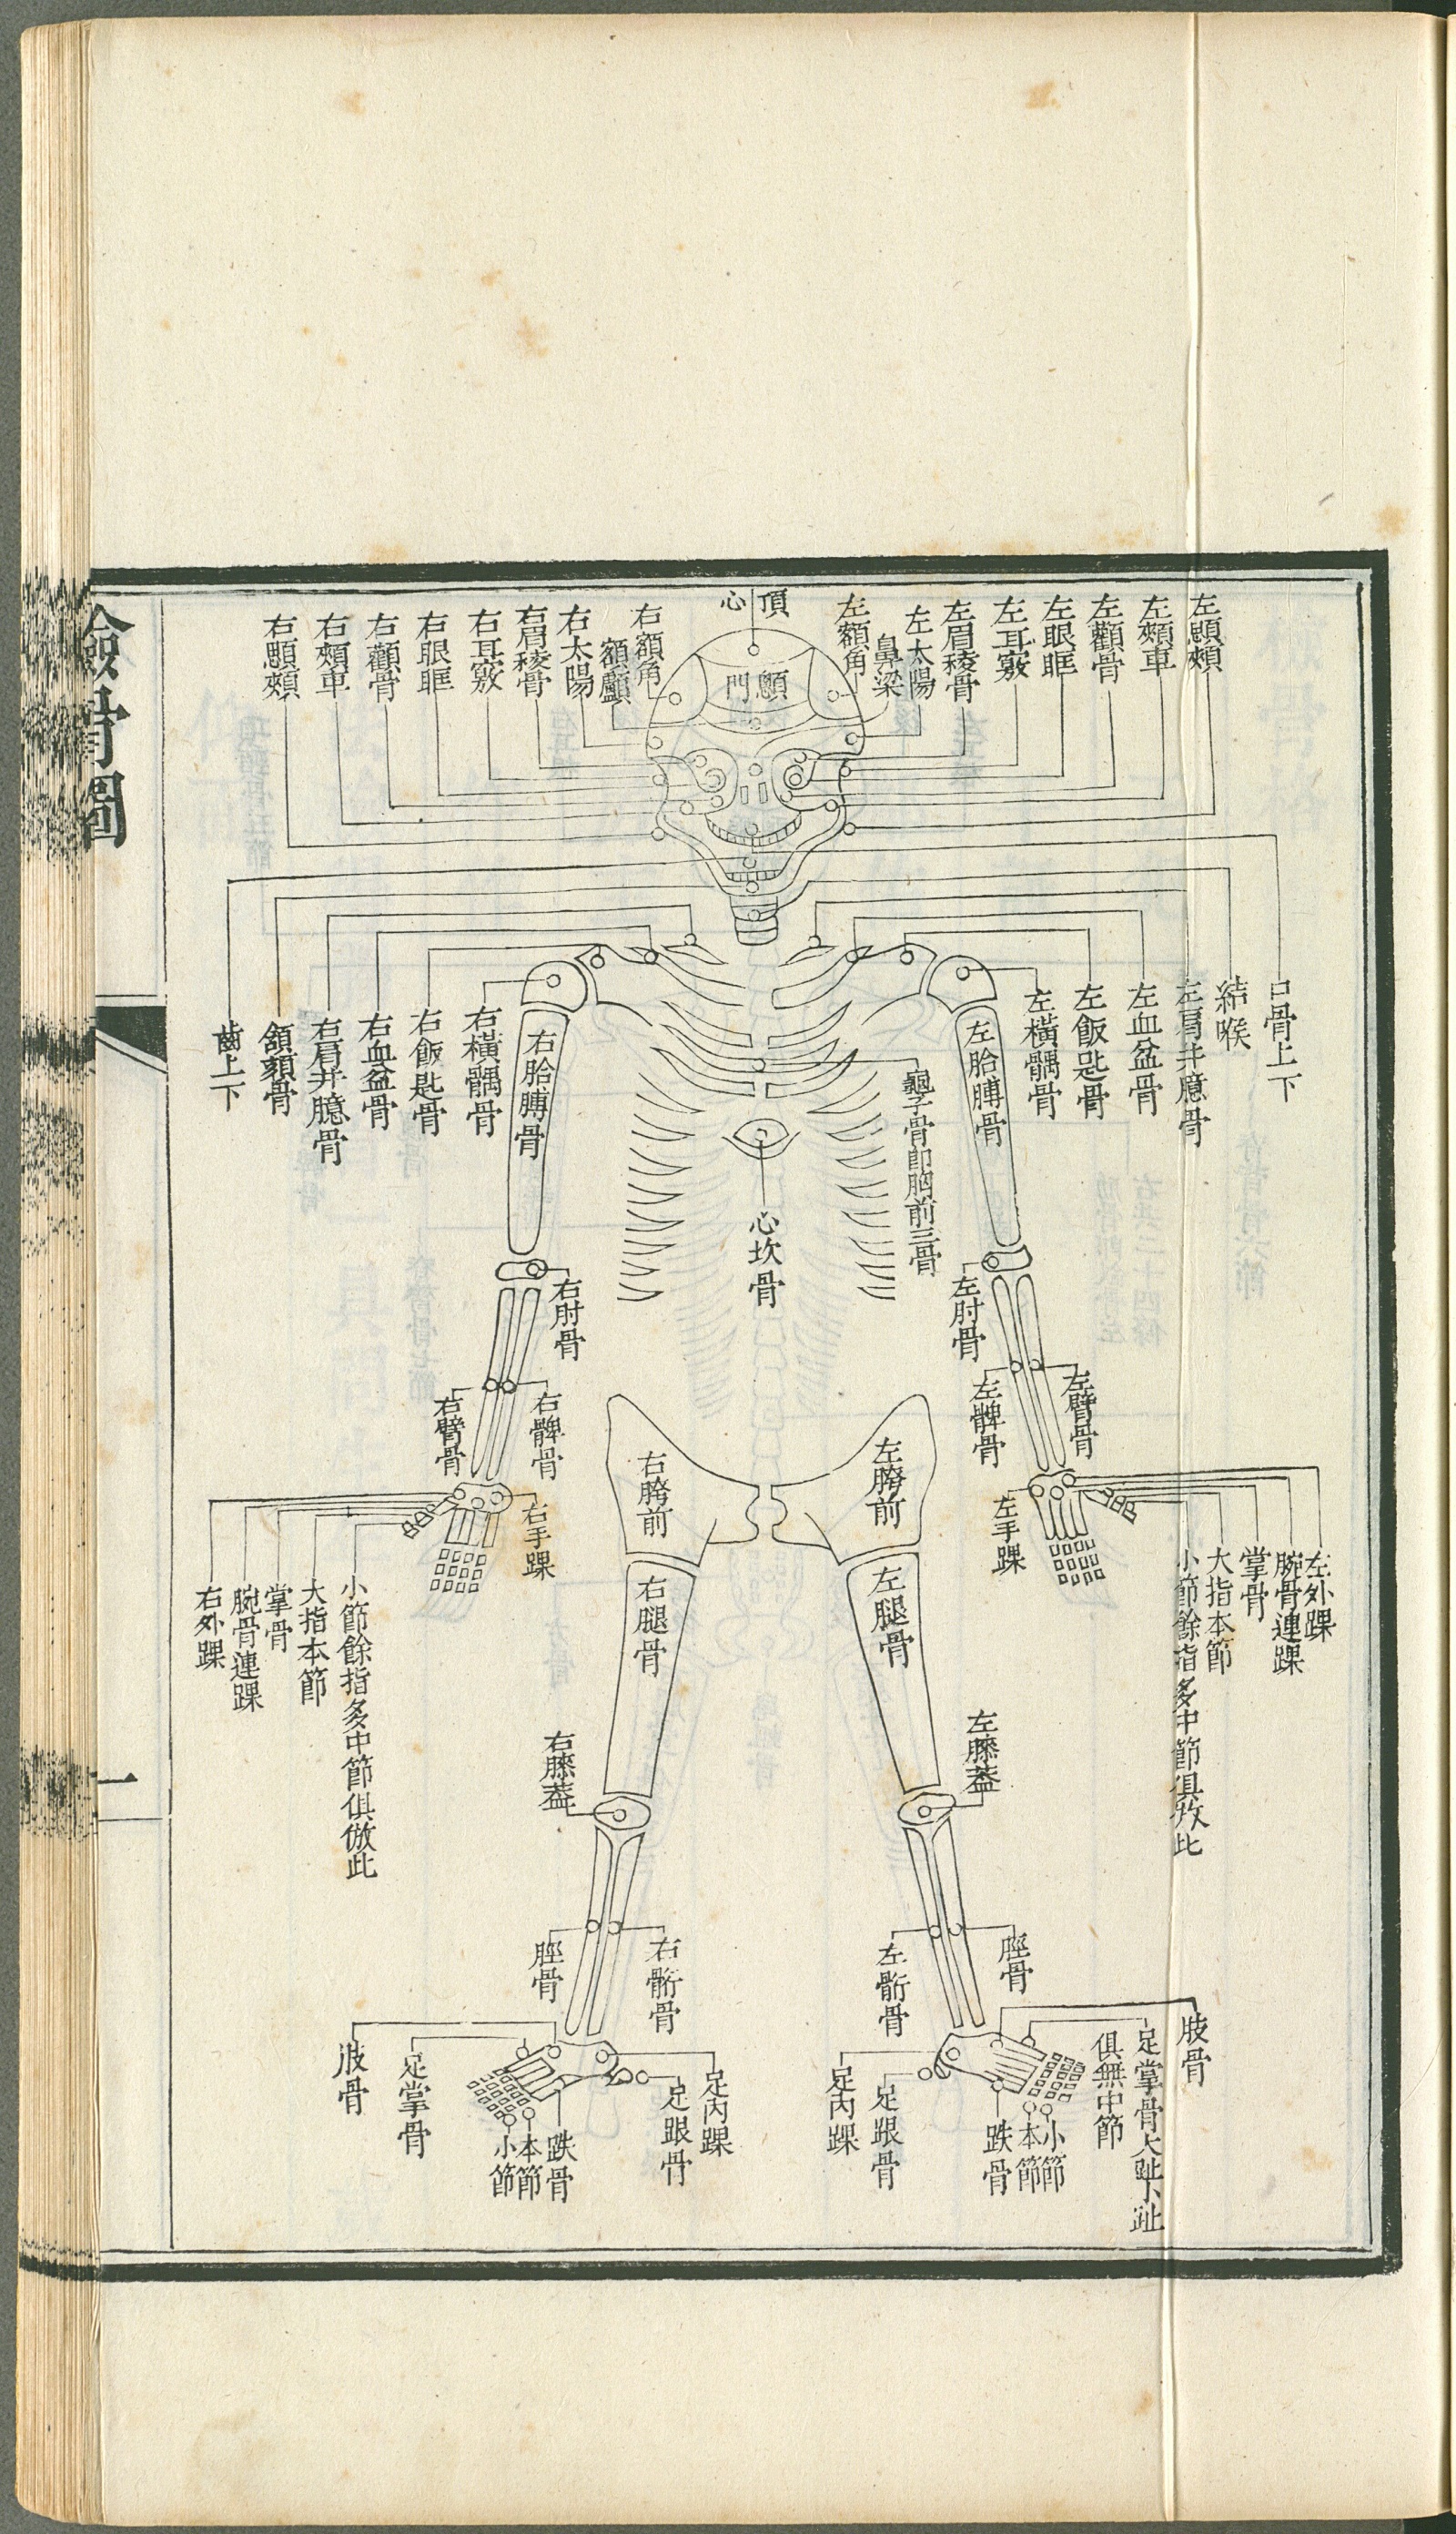 左顋頰
左頰車
左顴骨
左眼眶
左耳竅
左眉稜骨
左太陽
鼻梁
左額角
頂心
顖門
右額角
額顱
右太陽
右眉稜骨
右耳竅
右眼眶
右顴骨
右頰車
右顋頰
口骨上下
結喉
左肩井臆骨
左血盆骨
左飯匙骨
左橫髃骨
左胎膊骨
龜子骨即胸前三骨
心坎骨
右胎膊骨
右橫髃骨
右飯匙骨
右血盆骨
右肩井臆骨
頷頦骨
齒上下
左肘骨
左臂骨
左髀骨
右肘骨
右髀骨
右臂骨
左胯前
右胯前
左外踝
腕骨連踝
掌骨
大指本節
小節餘指多中節俱攷此
左手踝
右手踝
小節餘指多中節俱倣此
大指本節
掌骨
腕骨連踝
右外踝
左腿骨
右腿骨
左膝蓋
右膝蓋
脛骨
左䯒骨
右䯒骨
脛骨
肢骨
足掌骨大趾小趾
俱無中節
小節
本節
跌骨
足跟骨
足內踝
足內踝
足跟骨
跌骨
本節
小節
足掌骨
肢骨
檢骨圖
一